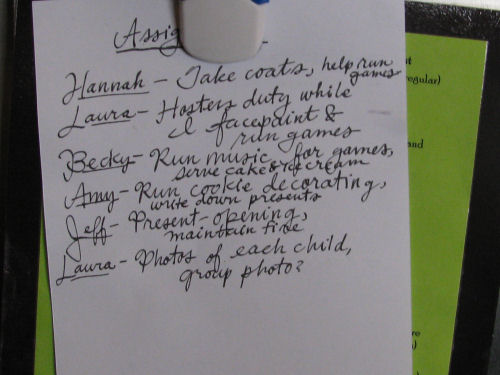 Assig
Hannah - Take coats, help run
games
Laura - Hostess duty while
I facepaint &
run games
Becky - Run music for games,
serve cake & ice cream
Amy - Run cookie decorating,
write down presents
Jeff - Present-opening,
maintain fire
Laura - Photos of each child,
group photo?
egular)
and